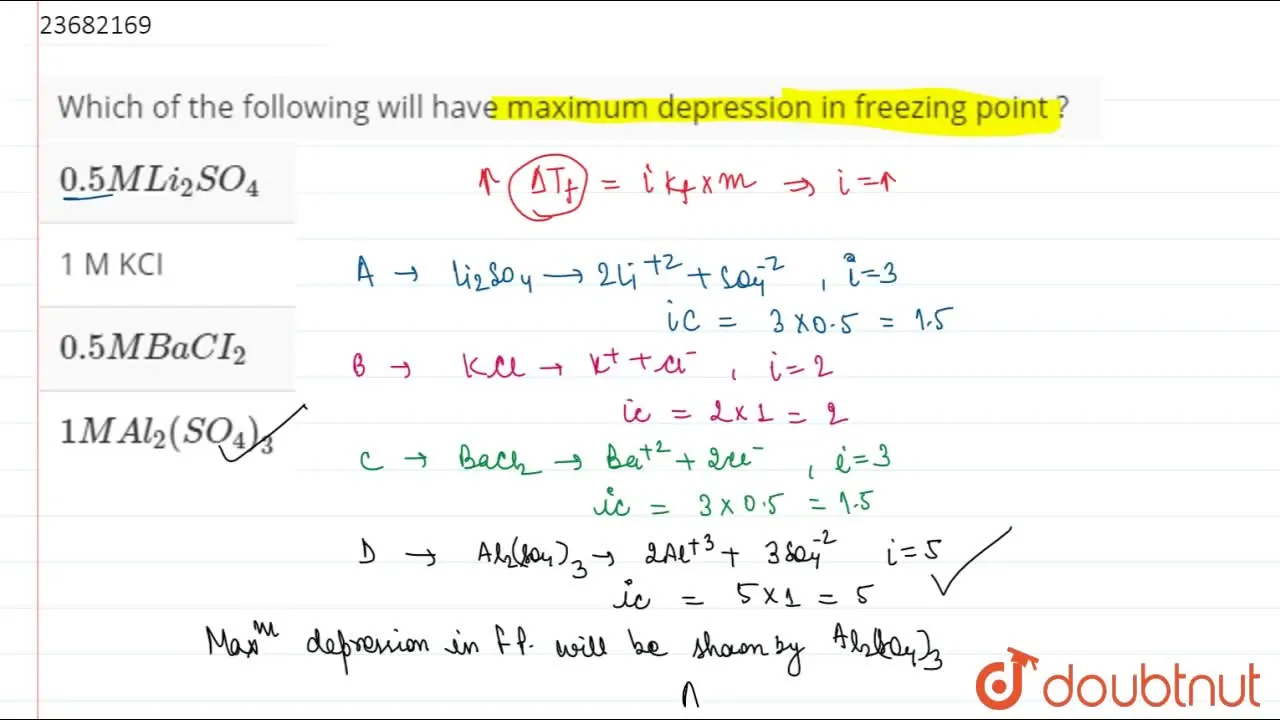 23682169
Which of the following will have maximum depression in freezing point ?
0.5MLi₂SO₄
↑ ΔTf = i kf × m ⇒ i=↑
1 M KCl
A → Li₂SO₄ → 2Li⁺² + SO₄⁻² , i=3
ic = 3×0.5 = 1.5
0.5MBaCI₂
B → KCl → K⁺ + Cl⁻ , i=2
ic = 2×1 = 2
1MAl₂(SO₄)₃
C → BaCl₂ → Ba⁺² + 2Cl⁻ , i=3
ic = 3×0.5 = 1.5
D → Al₂(SO₄)₃ → 2Al⁺³ + 3SO₄⁻² i=5
ic = 5×1 = 5
Maxᵐ depression in f.p. will be shown by Al₂(SO₄)₃
doubtnut